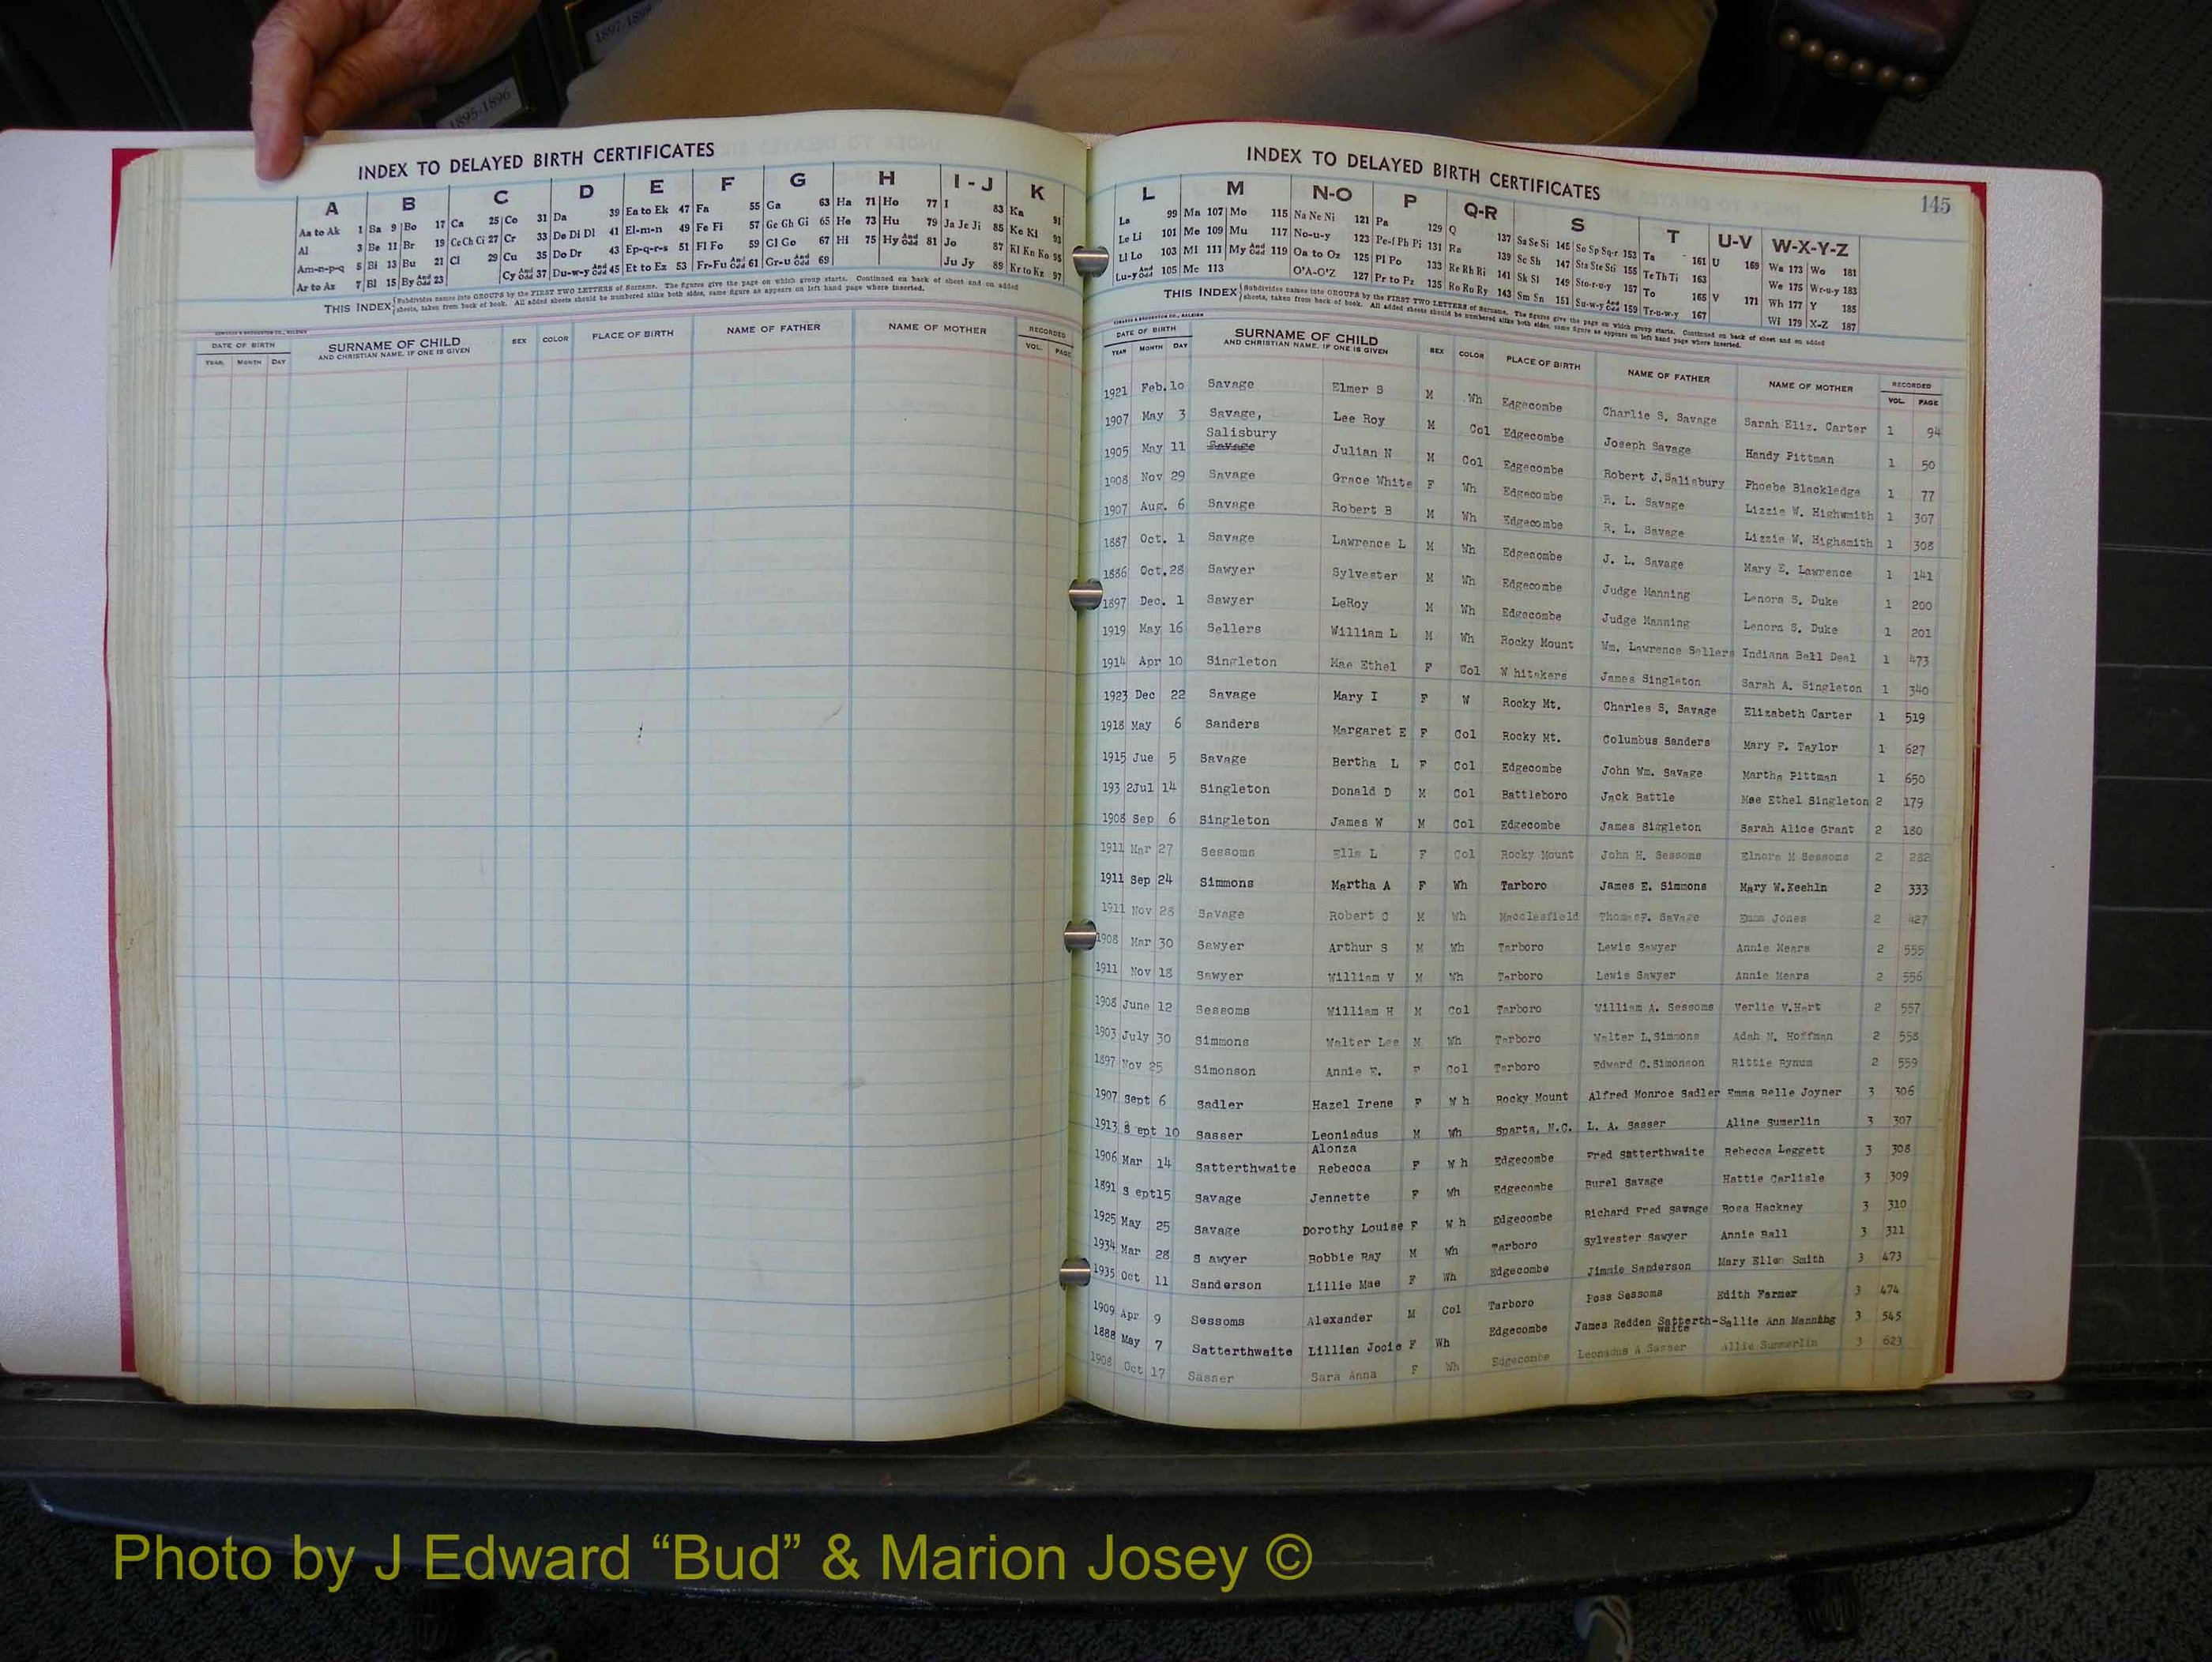 1897-1898
1895-1896
INDEX TO DELAYED BIRTH CERTIFICATES
A B C D E F G H I - J K
Aa to Ak 1 Ba 9 Bo 17 Ca 25 Co 31 Da 39 Ea to Ek 47 Fa 55 Ga 63 Ha 71 Ho 77 I 83 Ka 91
Al 3 Be 11 Br 19 Ce Ch Ci 27 Cr 33 De Di Dl 41 El-m-n 49 Fe Fi 57 Ge Gh Gi 65 He 73 Hu 79 Ja Je Ji 85 Ke Kl 93
Am-n-p-q 5 Bi 13 Bu 21 Cl 29 Cu 35 Do Dr 43 Ep-q-r-s 51 Fl Fo 59 Gl Go 67 Hi 75 Hy And Odd 81 Jo 87 Kl Kn Ko 95
Ar to Az 7 Bl 15 By And Odd 23 Cy And Odd 37 Du-w-y And Odd 45 Et to Ez 53 Fr-Fu And Odd 61 Gr-u And Odd 69 Ju Jy 89 Kr to Kz 97
THIS INDEX Subdivides names into GROUPS by the FIRST TWO LETTERS of Surname. The figures give the page on which group starts. Continued on back of sheet and on added
sheets, taken from back of book. All added sheets should be numbered alike both sides, same figure as appears on left hand page where inserted.
DATE OF BIRTH SURNAME OF CHILD SEX COLOR PLACE OF BIRTH NAME OF FATHER NAME OF MOTHER RECORDED
YEAR MONTH DAY AND CHRISTIAN NAME, IF ONE IS GIVEN VOL. PAGE
INDEX TO DELAYED BIRTH CERTIFICATES
145
L M N-O P Q-R S T U-V W-X-Y-Z
La 99 Ma 107 Mo 115 Na Ne Ni 121 Pa 129 Q 137 Sa Se Si 145 So Sp Sq-r 153 Ta 161 U 169 Wa 173 Wo 181
Le Li 101 Me 109 Mu 117 No-u-y 123 Pe-f Ph Pi 131 Ra 139 Sc Sh 147 Sta Ste Sti 155 Te Th Ti 163 We 175 Wr-u-y 183
Ll Lo 103 Mi 111 My And Odd 119 Oa to Oz 125 Pl Po 133 Re Rh Ri 141 Sk Sl 149 Sto-r-u-y 157 To 165 V 171 Wh 177 Y 185
Lu-y And Odd 105 Mc 113 O'A-O'Z 127 Pr to Pz 135 Ro Ru Ry 143 Sm Sn 151 Su-w-y And Odd 159 Tr-u-w-y 167 Wi 179 X-Z 187
THIS INDEX Subdivides names into GROUPS by the FIRST TWO LETTERS of Surname. The figures give the page on which group starts. Continued on back of sheet and on added
sheets, taken from back of book. All added sheets should be numbered alike both sides, same figure as appears on left hand page where inserted.
DATE OF BIRTH SURNAME OF CHILD SEX COLOR PLACE OF BIRTH NAME OF FATHER NAME OF MOTHER RECORDED
YEAR MONTH DAY AND CHRISTIAN NAME, IF ONE IS GIVEN VOL. PAGE
1921 Feb. 10 Savage Elmer S M Wh Edgecombe Charlie S. Savage Sarah Eliz. Carter 1 94
1907 May 3 Savage, Lee Roy M Col Edgecombe Joseph Savage Handy Pittman 1 50
Salisbury
1905 May 11 Savage Julian N M Col Edgecombe Robert J. Salisbury Phoebe Blackledge 1 77
1908 Nov 29 Savage Grace White F Wh Edgecombe R. L. Savage Lizzie W. Highwmith 1 307
1907 Aug. 6 Savage Robert B M Wh Edgecombe R. L. Savage Lizzie W. Highsmith 1 308
1887 Oct. 1 Savage Lawrence L M Wh Edgecombe J. L. Savage Mary E. Lawrence 1 141
1886 Oct. 28 Sawyer Sylvester M Wh Edgecombe Judge Manning Lenora S. Duke 1 200
1897 Dec. 1 Sawyer LeRoy M Wh Edgecombe Judge Manning Lenora S. Duke 1 201
1919 May 16 Sellers William L M Wh Rocky Mount Wm. Lawrence Sellers Indiana Bell Deal 1 473
1914 Apr 10 Singleton Mae Ethel F Col W hitakers James Singleton Sarah A. Singleton 1 340
1923 Dec 22 Savage Mary I F W Rocky Mt. Charles S. Savage Elizabeth Carter 1 519
1918 May 6 Sanders Margaret E F Col Rocky Mt. Columbus Sanders Mary F. Taylor 1 627
1915 Jue 5 Savage Bertha L F Col Edgecombe John Wm. Savage Martha Pittman 1 650
193 2Jul 14 Singleton Donald D M Col Battleboro Jack Battle Mae Ethel Singleton 2 179
1908 Sep 6 Singleton James W M Col Edgecombe James Singleton Sarah Alice Grant 2 180
1911 Mar 27 Sessoms Ella L F Col Rocky Mount John H. Sessoms Elnora M Sessoms 2 282
1911 Sep 24 Simmons Martha A F Wh Tarboro James E. Simmons Mary W.Keehln 2 333
1911 Nov 28 Savage Robert C M Wh Macclesfield ThomasF. Savage Emma Jones 2 427
1908 Mar 30 Sawyer Arthur S M Wh Tarboro Lewis Sawyer Annie Mears 2 555
1911 Nov 18 Sawyer William V M Wh Tarboro Lewis Sawyer Annie Mears 2 556
1908 June 12 Sessoms William H M Col Tarboro William A. Sessoms Verlie V.Hart 2 557
1903 July 30 Simmons Walter Lee M Wh Tarboro Walter L.Simmons Adah N. Hoffman 2 558
1897 Nov 25 Simonson Annie E. F Col Tarboro Edward C.Simonson Rittie Bynum 2 559
1907 Sept 6 Sadler Hazel Irene F W h Rocky Mount Alfred Monroe Sadler Emma Belle Joyner 3 306
1913 S ept 10 Sasser Leonisdus M Wh Sparta, N.C. L. A. Sasser Aline Sumerlin 3 307
Alonza
1906 Mar 14 Satterthwaite Rebecca F W h Edgecombe Fred Satterthwaite Rebecca Leggett 3 308
1891 S ept15 Savage Jennette F Wh Edgecombe Burel Savage Hattie Carlisle 3 309
1925 May 25 Savage Dorothy Louise F W h Edgecombe Richard Fred Savage Rosa Hackney 3 310
1934 Mar 28 S awyer Bobbie Ray M Wh Tarboro Sylvester Sawyer Annie Ball 3 311
1935 Oct 11 Sanderson Lillie Mae F Wh Edgecombe Jimmie Sanderson Mary Ellen Smith 3 473
1909 Apr 9 Sessoms Alexander M Col Tarboro Poss Sessoms Edith Farmer 3 474
1888 May 7 Satterthwaite Lillian Jocie F Wh Edgecombe James Redden Satterth- Sallie Ann Manning 3 545
waite
1908 Oct 17 Sasser Sara Anna F Wh Edgecombe Leonadus A Sasser Allie Summerlin 3 623
Photo by J Edward “Bud” & Marion Josey ©